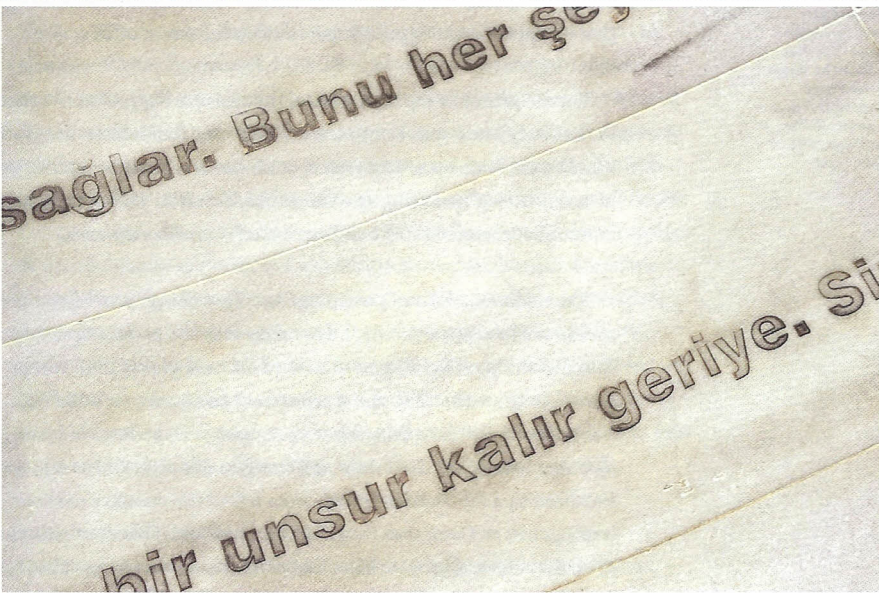 sağlar. Bunu her şey
bir unsur kalır geriye. Si